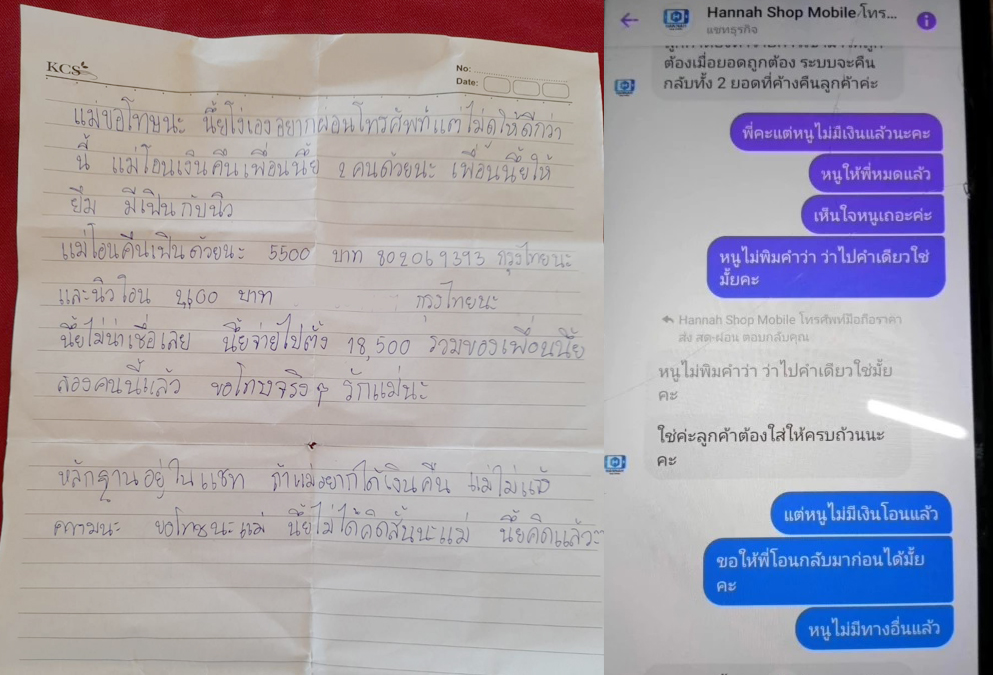 KCS
No:
Date:
แม่ขอโทษนะ นี้ยโง่เองอยากผ่อนโทรศัพท์แต่ไม่ดูให้ดีกว่า
นี้ แม่โอนเงินคืนเพื่อนนี้ย 2 คนด้วยนะ เพื่อนนี้ยให้
ยืม มีเฟินกับนิว
แม่โอนคืนเฟินด้วยนะ 5500 บาท 802069393 กรุงไทยนะ
และนิวโอน บาท กรุงไทยนะ
นี้ยไม่น่าเชื่อเลย นี้ยจ่ายไปตั้ง 18,500 รวมของเพื่อนนี้ย
สองคนนี้แล้ว ขอโทษจริงๆ รักแม่นะ
หลักฐานอยู่ในแชท ถ้าแม่อยากได้เงินคืน แม่ไปแจ้ง
ความนะ ขอโทษนะแม่ นี้ยไม่ได้คิดสั้นนะแม่ นี้ยคิดแล้ว
Hannah Shop Mobile โทร...
แชทธุรกิจ
ต้องเมื่อยอดถูกต้อง ระบบจะคืน
กลับทั้ง 2 ยอดที่ค้างคืนลูกค้าค่ะ
พี่คะแต่หนูไม่มีเงินแล้วนะคะ
หนูให้พี่หมดแล้ว
เห็นใจหนูเถอะค่ะ
หนูไม่พิมคำว่า ว่าไปคำเดียวใช่
มั้ยคะ
Hannah Shop Mobile โทรศัพท์มือถือราคา
ส่ง สด-ผ่อน ตอบกลับคุณ
หนูไม่พิมคำว่า ว่าไปคำเดียวใช่มั้ย
คะ
ใช่ค่ะลูกค้าต้องใส่ให้ครบถ้วนนะ
คะ
แต่หนูไม่มีเงินโอนแล้ว
ขอให้พี่โอนกลับมาก่อนได้มั้ย
คะ
หนูไม่มีทางอื่นแล้ว